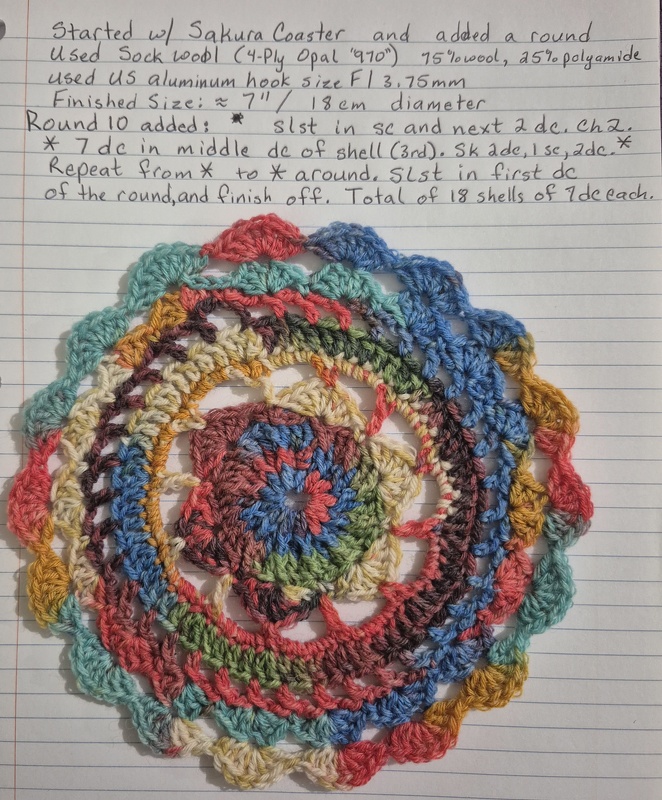 Started w/ Sakura Coaster and added a round
Used Sock wool (4-Ply Opal "970") 75% wool, 25% polyamide
used US aluminum hook size F/3.75mm
Finished Size: ≈ 7"/ 18cm diameter
Round 10 added: * slst in sc and next 2 dc. Ch2.
* 7 dc in middle dc of shell (3rd). Sk 2dc, 1sc, 2dc.*
Repeat from * to * around. Slst in first dc
of the round, and finish off. Total of 18 shells of 7dc each.